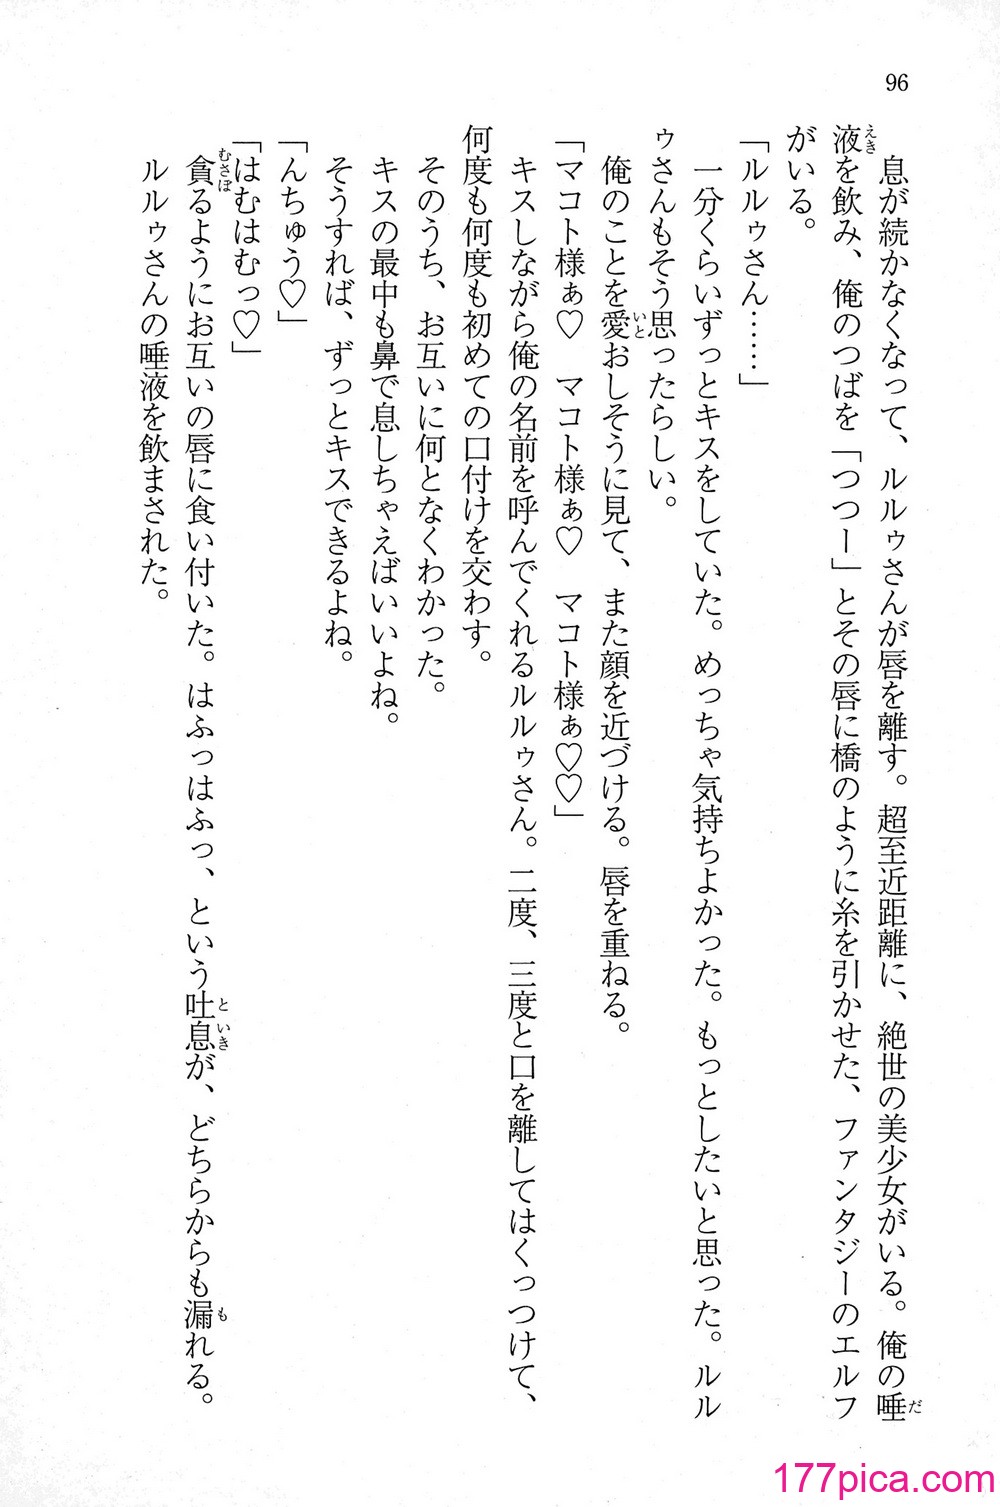 96
息が続かなくなって、ルルゥさんが唇を離す。超至近距離に、絶世の美少女がいる。俺の唾
液を飲み、俺のつばを「つつー」とその唇に橋のように糸を引かせた、ファンタジーのエルフ
がいる。
「ルルゥさん……」
一分くらいずっとキスをしていた。めっちゃ気持ちよかった。もっとしたいと思った。ルル
ゥさんもそう思ったらしい。
俺のことを愛おしそうに見て、また顔を近づける。唇を重ねる。
「マコト様ぁ♡　マコト様ぁ♡　マコト様ぁ♡♡」
キスしながら俺の名前を呼んでくれるルルゥさん。二度、三度と口を離してはくっつけて、
何度も何度も初めての口付けを交わす。
そのうち、お互いに何となくわかった。
キスの最中も鼻で息しちゃえばいいよね。
そうすれば、ずっとキスできるよね。
「んちゅう♡」
「はむはむっ♡」
貪るようにお互いの唇に食い付いた。はふっはふっ、という吐息が、どちらからも漏れる。
ルルゥさんの唾液を飲まされた。
177pica.com